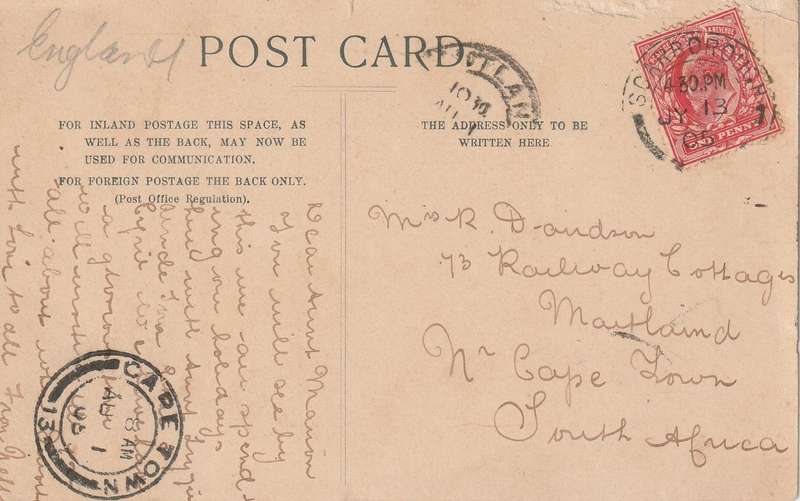 England
POST CARD.
FOR INLAND POSTAGE THIS SPACE, AS
WELL AS THE BACK, MAY NOW BE
USED FOR COMMUNICATION.
FOR FOREIGN POSTAGE THE BACK ONLY.
(Post Office Regulation).
THE ADDRESS ONLY TO BE
WRITTEN HERE
SCARBOROUGH
4.30.PM
JY 13
PENNY
Mrs R. Davidson
73 Railway Cottages
Maitlaind
Nr Cape Town
South Africa
Dear Aunt Marion
You will see by
this we are spend
ing our holidays
with Aunt
Uncle
a
will
all about
with love to all from
CAPE TOWN
8 AM
AU 1
13